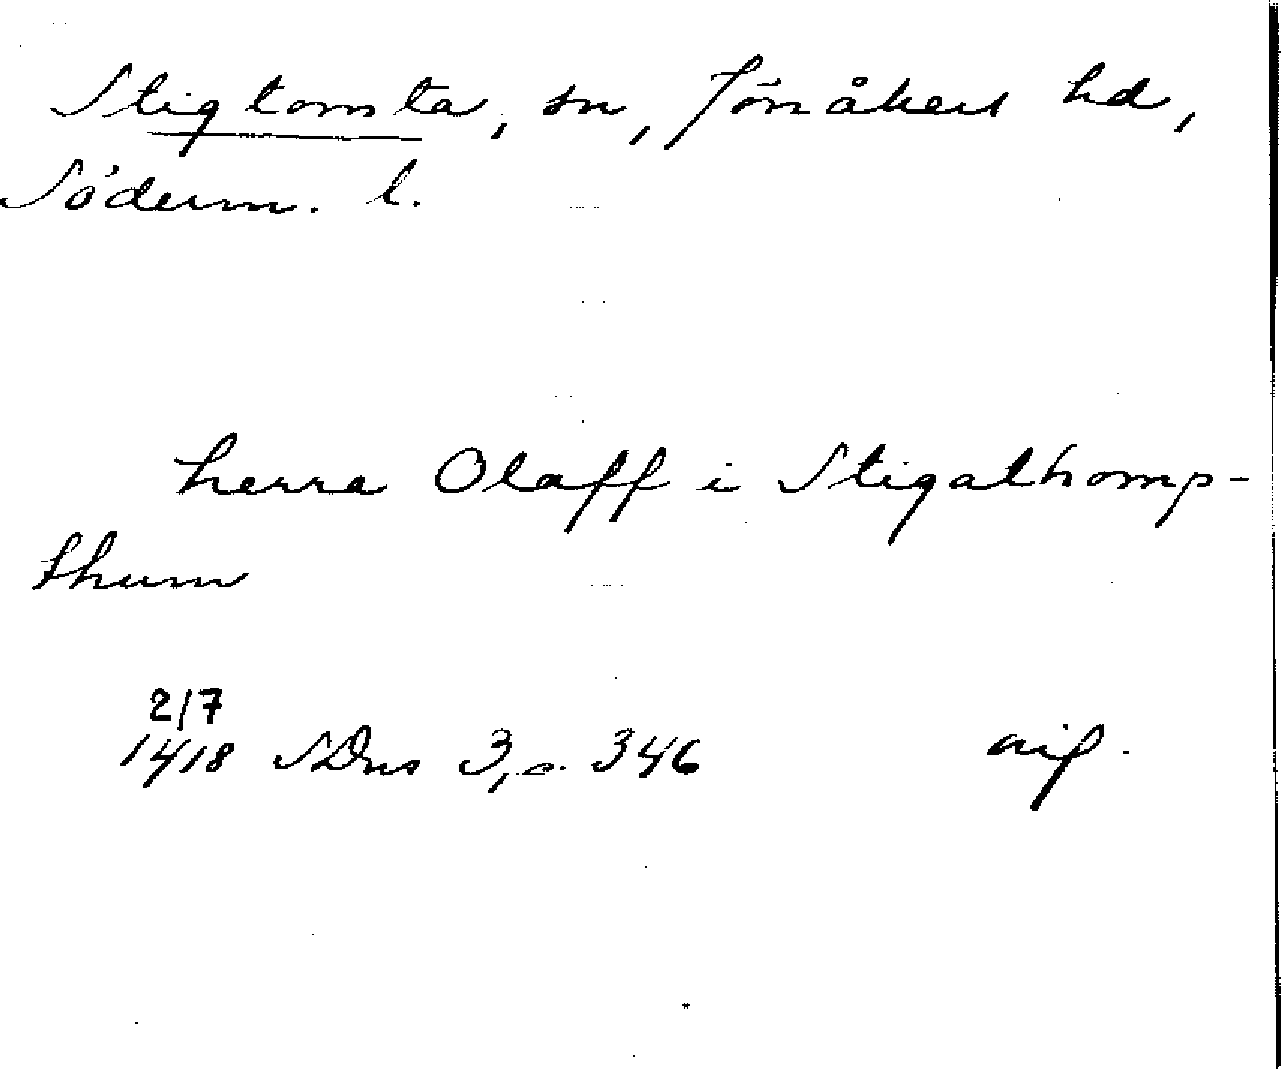 Stigtomsta, sn, Jönåkers hd,
Söderm. l.
herra Olaff i Stigathomp-
thum
2/7
1418 SDns 3, s. 346